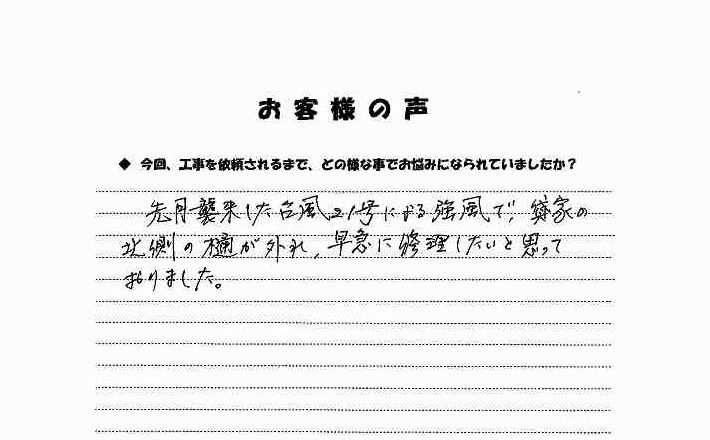 お客様の声
◆ 今回、工事を依頼されるまで、どの様な事でお悩みになられていましたか？
先月襲来した台風21号による強風で、貸家の
北側の樋が外れ、早急に修理したいと思って
おりました。